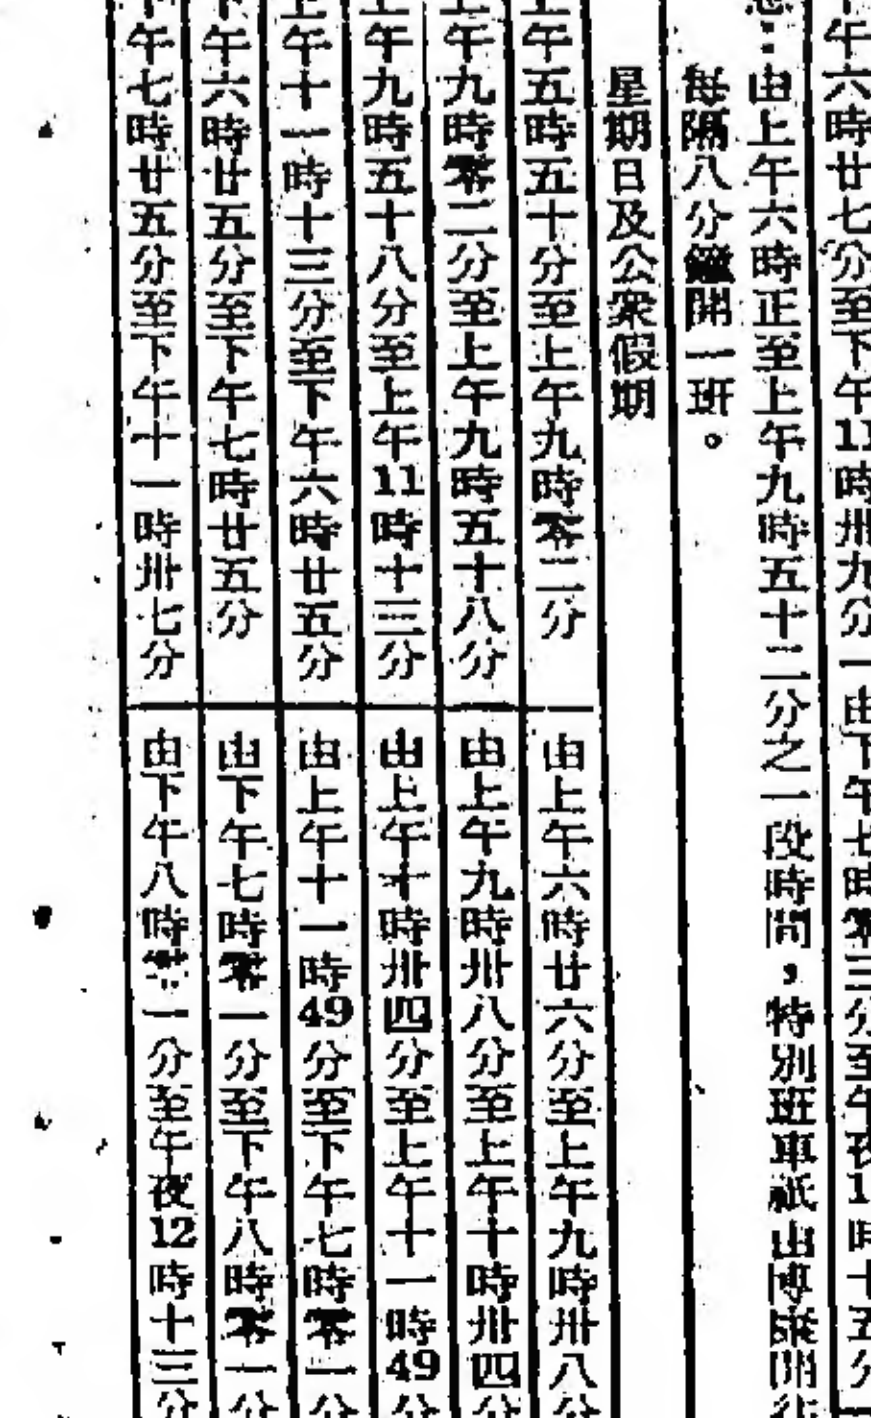 午六時廿七分至下午11時卅九分
由下午七時零三分至午夜1時十五分
由上午六時正至上午九時五十二分之一段時間，特別班車祇由博康開往
每隔八分鐘開一班。
星期日及公衆假期
上午五時五十分至上午九時零二分
由上午六時廿六分至上午九時卅八分
上午九時零二分至上午九時五十八分
由上午九時卅八分至上午十時卅四
上午九時五十八分至上午11時十三分
由上午十時卅四分至上午十一時49分
上午十一時十三分至下午六時廿五分
由上午十一時49分至下午七時零一分
下午六時廿五分至下午七時廿五分
由下午七時零一分至下午八時零一分
午七時廿五分至下午十一時卅七分
由下午八時零一分至午夜12時十三分